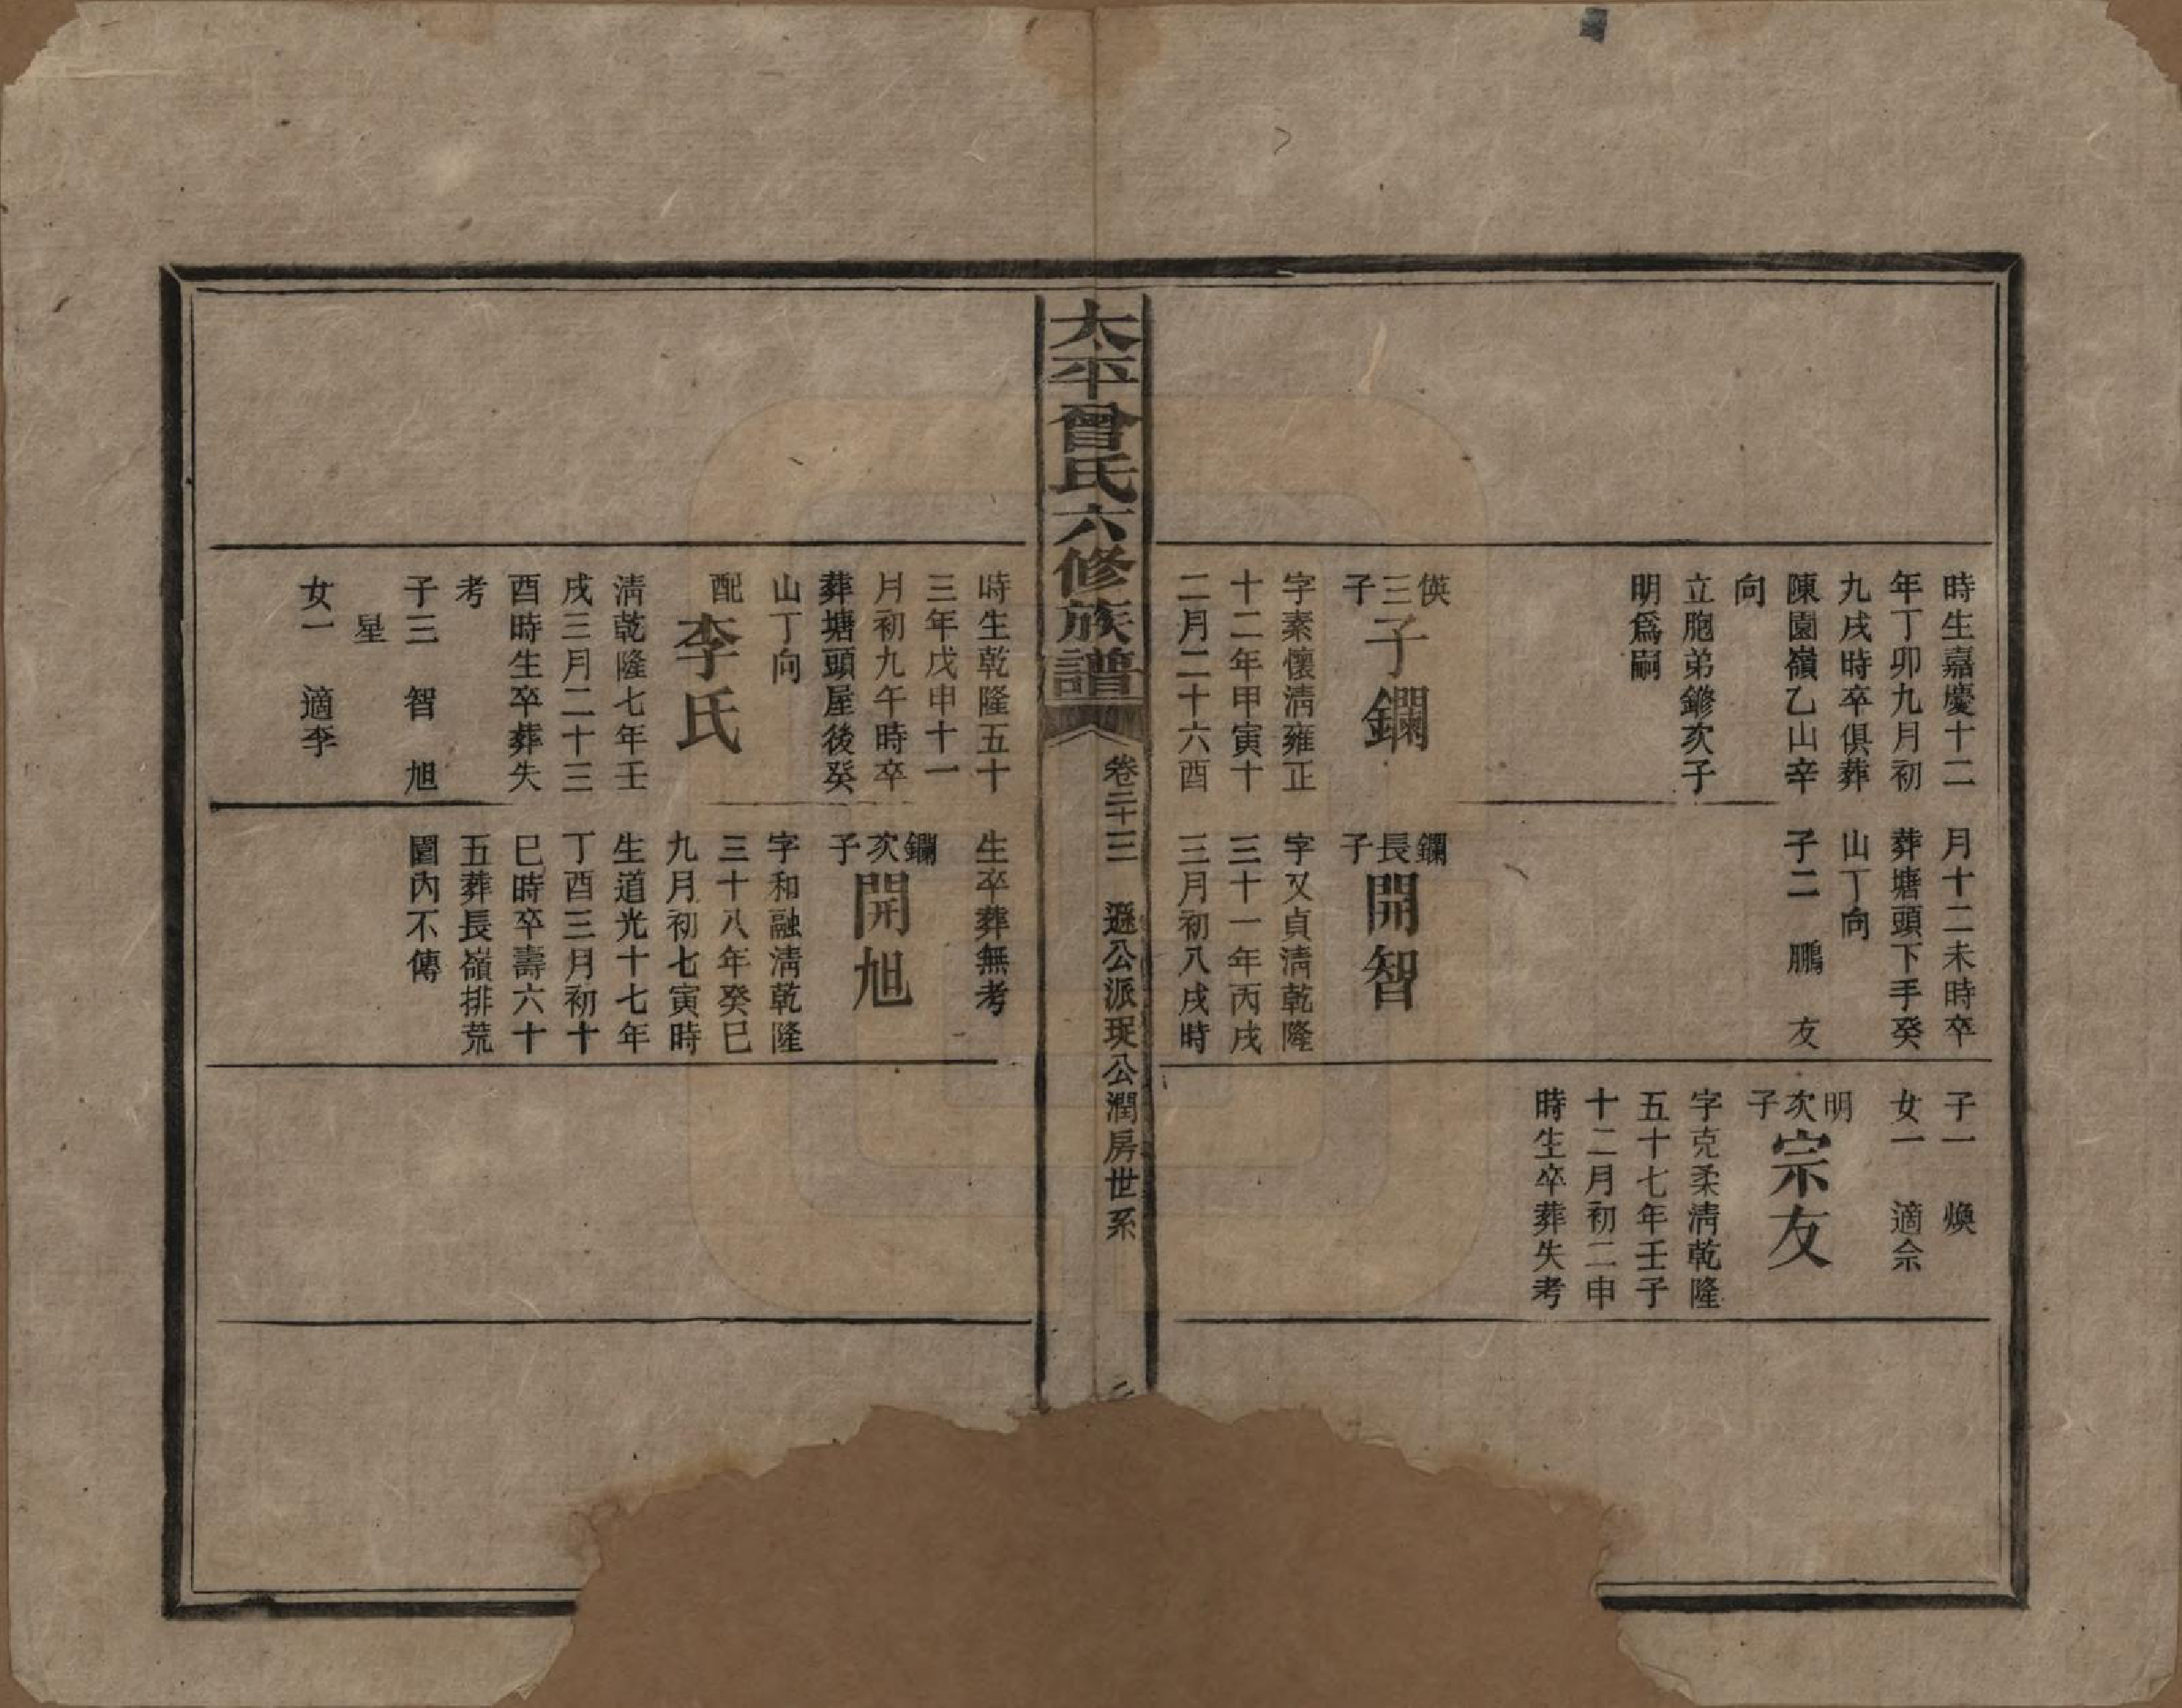 時生嘉慶十二
年丁卯九月初
九戌時卒俱葬
陳園嶺乙山辛
向
立胞弟鏒次子
明爲嗣
偀三子
子鑭
字素懷淸雍正
十二年甲寅十
二月二十六酉
月十二未時卒
葬塘頭下手癸
山丁向
子二 鵬 友
鑭長子
開智
字又貞淸乾隆
三十一年丙戌
三月初八戌時
子一 煥
女一 適佘
明次子
宗友
字克柔淸乾隆
五十七年壬子
十二月初二申
時生卒葬失考
太平曾氏六修族譜
卷二十三 遜公派珽公潤房世系
時生乾隆五十
三年戊申十一
月初九午時卒
葬塘頭屋後癸
山丁向
配
李氏
淸乾隆七年壬
戌三月二十三
酉時生卒葬失
考
子三 智 旭
星
女一 適李
生卒葬無考
鑭次子
開旭
字和融淸乾隆
三十八年癸巳
九月初七寅時
生道光十七年
丁酉三月初十
巳時卒壽六十
五葬長嶺排荒
園內不傳